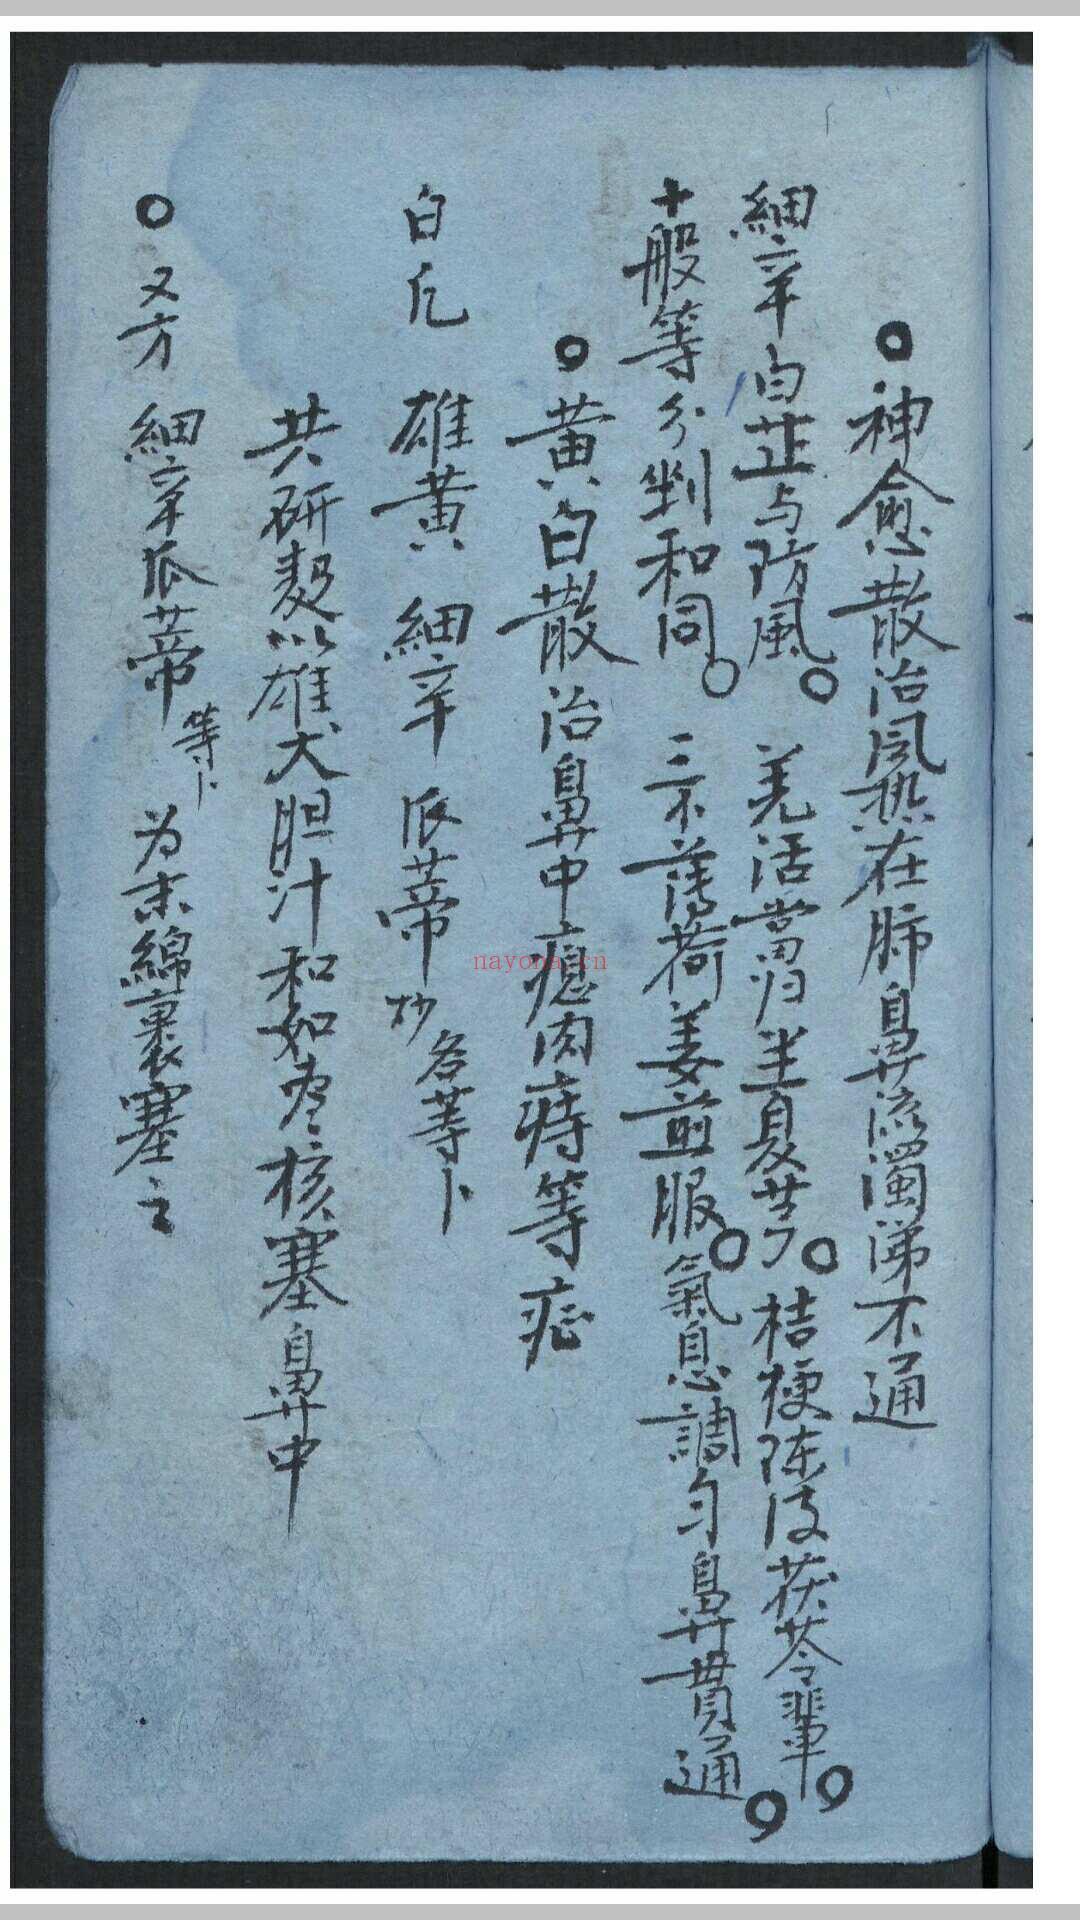 ○神愈散治風热在肺鼻流濁涕不通
細辛白芷与防風○羌活當归半夏芎○桔梗陈皮茯苓輩○
十般等分剉和同○三不薄荷姜煎服○氣息調匀鼻貫通○
○黄白散治鼻中瘜肉痔等症
白凡 雄黄 細辛 瓜蒂炒 各等卜
共研 以雄犬胆汁和如枣核塞鼻中
○又方 細辛瓜蒂等卜 为末綿裹塞之
nayona.cn